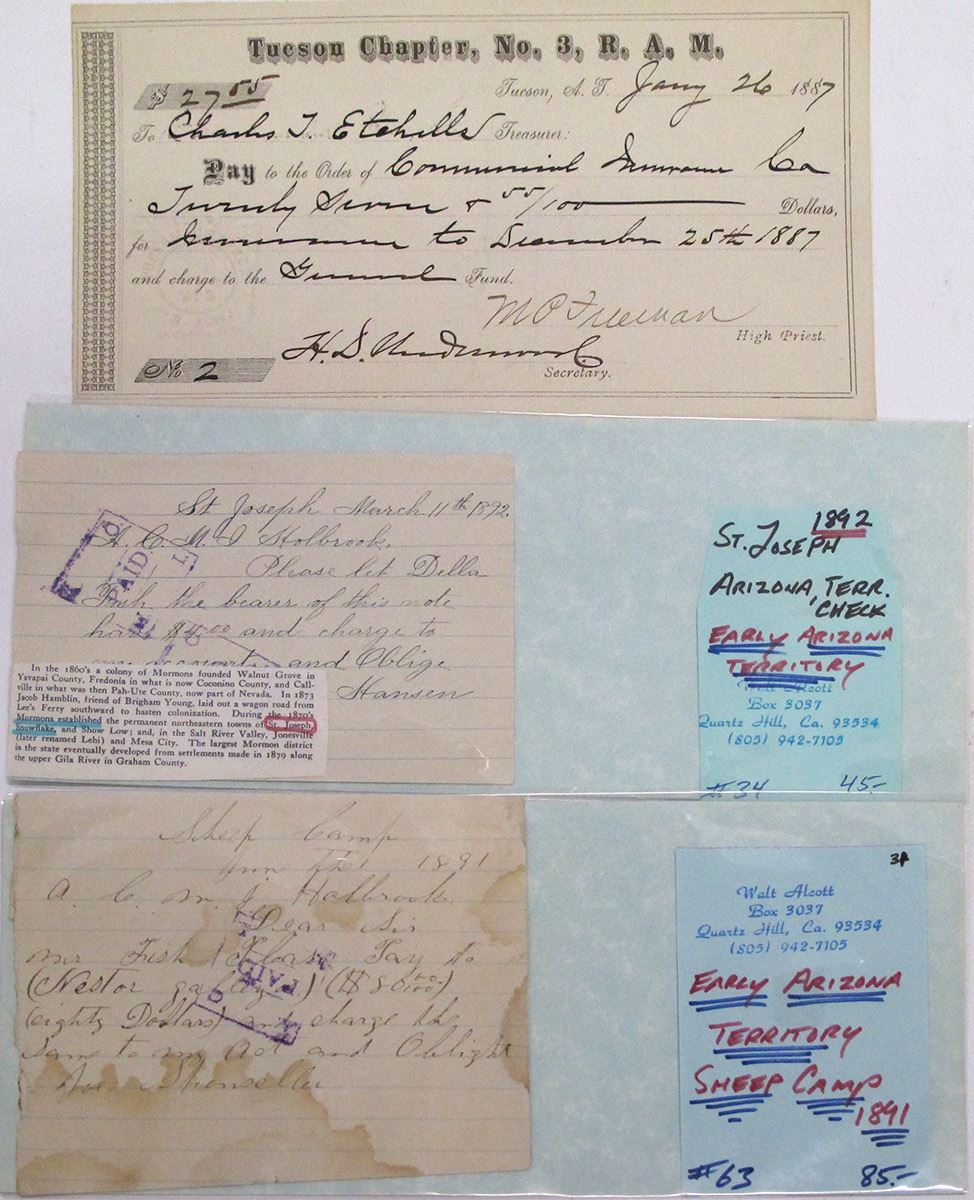 Tucson Chapter, No. 3, R. A. M.
$ 27 55
Tucson, A. T. Jany 26 1887
To Charles T. Etchells Treasurer:
Pay to the Order of Commercial Insurance Co
Twenty Seven & 55/100 Dollars,
for Insurance to December 25th 1887
and charge to the General Fund.
M P Freeman
High Priest.
H. D. Underwood
Secretary.
No 2
St Joseph March 11th 1892
A. C. M. I Holbrook.
Please let Della
Fish, the bearer of this note
have $4.00 and charge to
my account and Oblige
Hansen
PAID
In the 1860's a colony of Mormons founded Walnut Grove in
Yavapai County, Fredonia in what is now Coconino County, and Call-
ville in what was then Pah-Ute County, now part of Nevada. In 1873
Jacob Hamblin, friend of Brigham Young, laid out a wagon road from
Lee's Ferry southward to hasten colonization. During the 1870's
Mormons established the permanent northeastern towns of St. Joseph,
Snowflake, and Show Low; and, in the Salt River Valley, Jonesville
(later renamed Lehi) and Mesa City. The largest Mormon district
in the state eventually developed from settlements made in 1879 along
the upper Gila River in Graham County.
1892
ST. JOSEPH
ARIZONA, TERR.
CHECK
EARLY ARIZONA
TERRITORY
Walt Alcott
Box 3037
Quartz Hill, Ca. 93534
(805) 942-7105
#34 45.-
Sheep Camp
1891
A. C. M. I. Holbrook
Dear Sir
Mr Fish Please Pay to
(Nestor ) ($80.00)
(eighty Dollars) and charge the
same to my Act and Oblight
Joe
PAID
34
Walt Alcott
Box 3037
Quartz Hill, Ca. 93534
(805) 942-7105
EARLY ARIZONA
TERRITORY
SHEEP CAMP
1891
#63 85.-